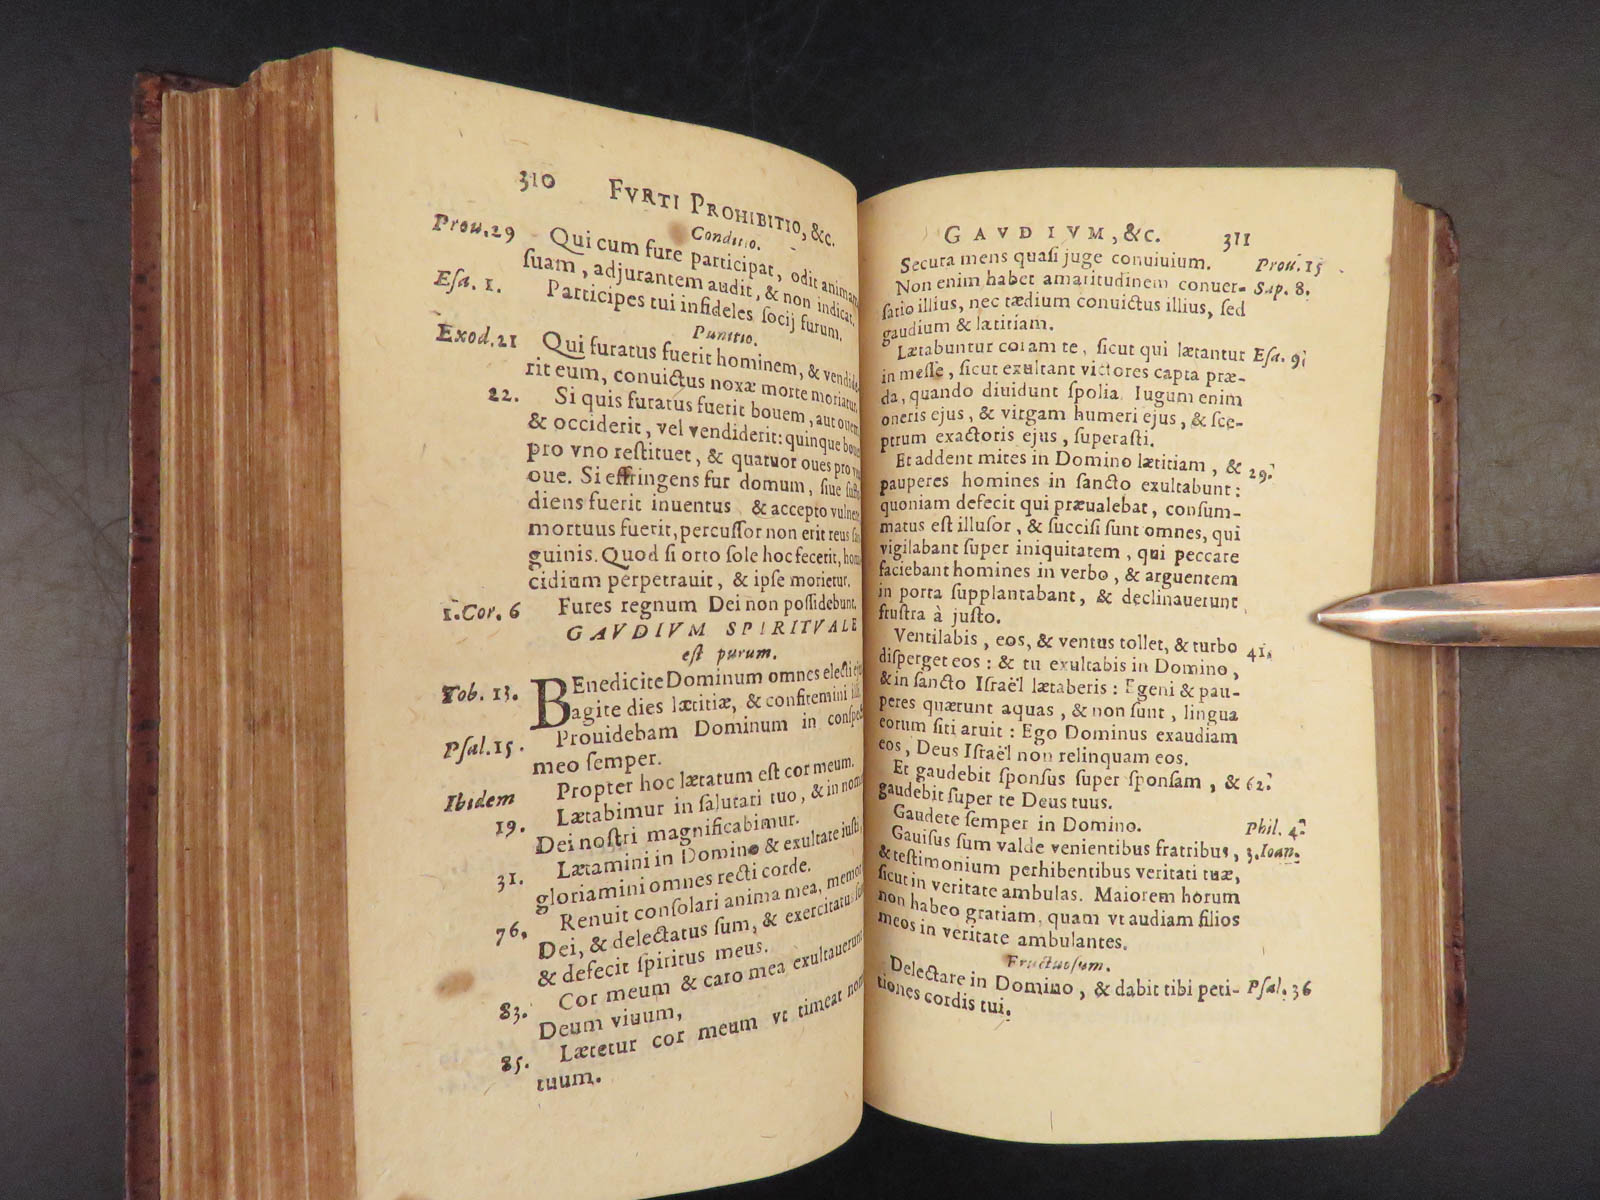 310 FVRTI PROHIBITIO, &c.
Conditio.
Prou. 29 Qui cum fure participat, odit animam
suam, adjurantem audit, & non indicat.
Esa. 1. Participes tui infideles socij furum.
Punitio.
Exod. 21 Qui furatus fuerit hominem, & vendide-
rit eum, convictus noxæ morte moriatur.
22. Si quis furatus fuerit bouem, aut ouem
& occiderit, vel vendiderit: quinque boues
pro vno restituet, & quatuor oues pro vna
oue. Si effringens fur domum, siue suffo-
diens fuerit inuentus & accepto vulnere
mortuus fuerit, percussor non erit reus san-
guinis. Quod si orto sole hoc fecerit, homi-
cidium perpetrauit, & ipse morietur.
1. Cor. 6 Fures regnum Dei non possidebunt.
GAVDIVM SPIRITVALE
est purum.
Tob. 13. BEnedicite Dominum omnes electi ejus
agite dies lætitiæ, & confitemini illi.
Psal. 15. Prouidebam Dominum in conspectu
meo semper.
Ibidem Propter hoc lætatum est cor meum.
19. Lætabimur in salutari tuo, & in nomine
Dei nostri magnificabimur.
31. Lætamini in Domino & exultate iusti,
gloriamini omnes recti corde.
76. Renuit consolari anima mea, memor
Dei, & delectatus sum, & exercitatus sum
& defecit spiritus meus.
83. Cor meum & caro mea exultauerunt
Deum viuum,
85. Lætetur cor meum vt timeat nomen
tuum.
GAVDIVM, &c. 311
Secura mens quasi juge conuiuium. Prou. 15
Non enim habet amaritudinem conuer- Sap. 8.
satio illius, nec tædium conuictus illius, sed
gaudium & lætitiam.
Lætabuntur coram te, sicut qui lætantur Esa. 9.
in messe, sicut exultant victores capta præ-
da, quando diuidunt spolia. Iugum enim
oneris ejus, & virgam humeri ejus, & sce-
ptrum exactoris ejus, superasti.
Et addent mites in Domino lætitiam, & 29.
pauperes homines in sancto exultabunt:
quoniam defecit qui præualebat, consum-
matus est illusor, & succisi sunt omnes, qui
vigilabant super iniquitatem, qui peccare
faciebant homines in verbo, & arguentem
in porta supplantabant, & declinauerunt
frustra à justo.
Ventilabis, eos, & ventus tollet, & turbo 41.
disperget eos: & tu exultabis in Domino,
& in sancto Israël lætaberis: Egeni & pau-
peres quærunt aquas, & non sunt, lingua
eorum siti aruit: Ego Dominus exaudiam
eos, Deus Israël non relinquam eos.
Et gaudebit sponsus super sponsam, & 62.
gaudebit super te Deus tuus.
Gaudete semper in Domino. Phil. 4.
Gauisus sum valde venientibus fratribus, 3. Ioan.
& testimonium perhibentibus veritati tuæ,
sicut in veritate ambulas. Maiorem horum
non habeo gratiam, quam vt audiam filios
meos in veritate ambulantes.
Fructuosum.
Delectare in Domino, & dabit tibi peti- Psal. 36
tiones cordis tui.